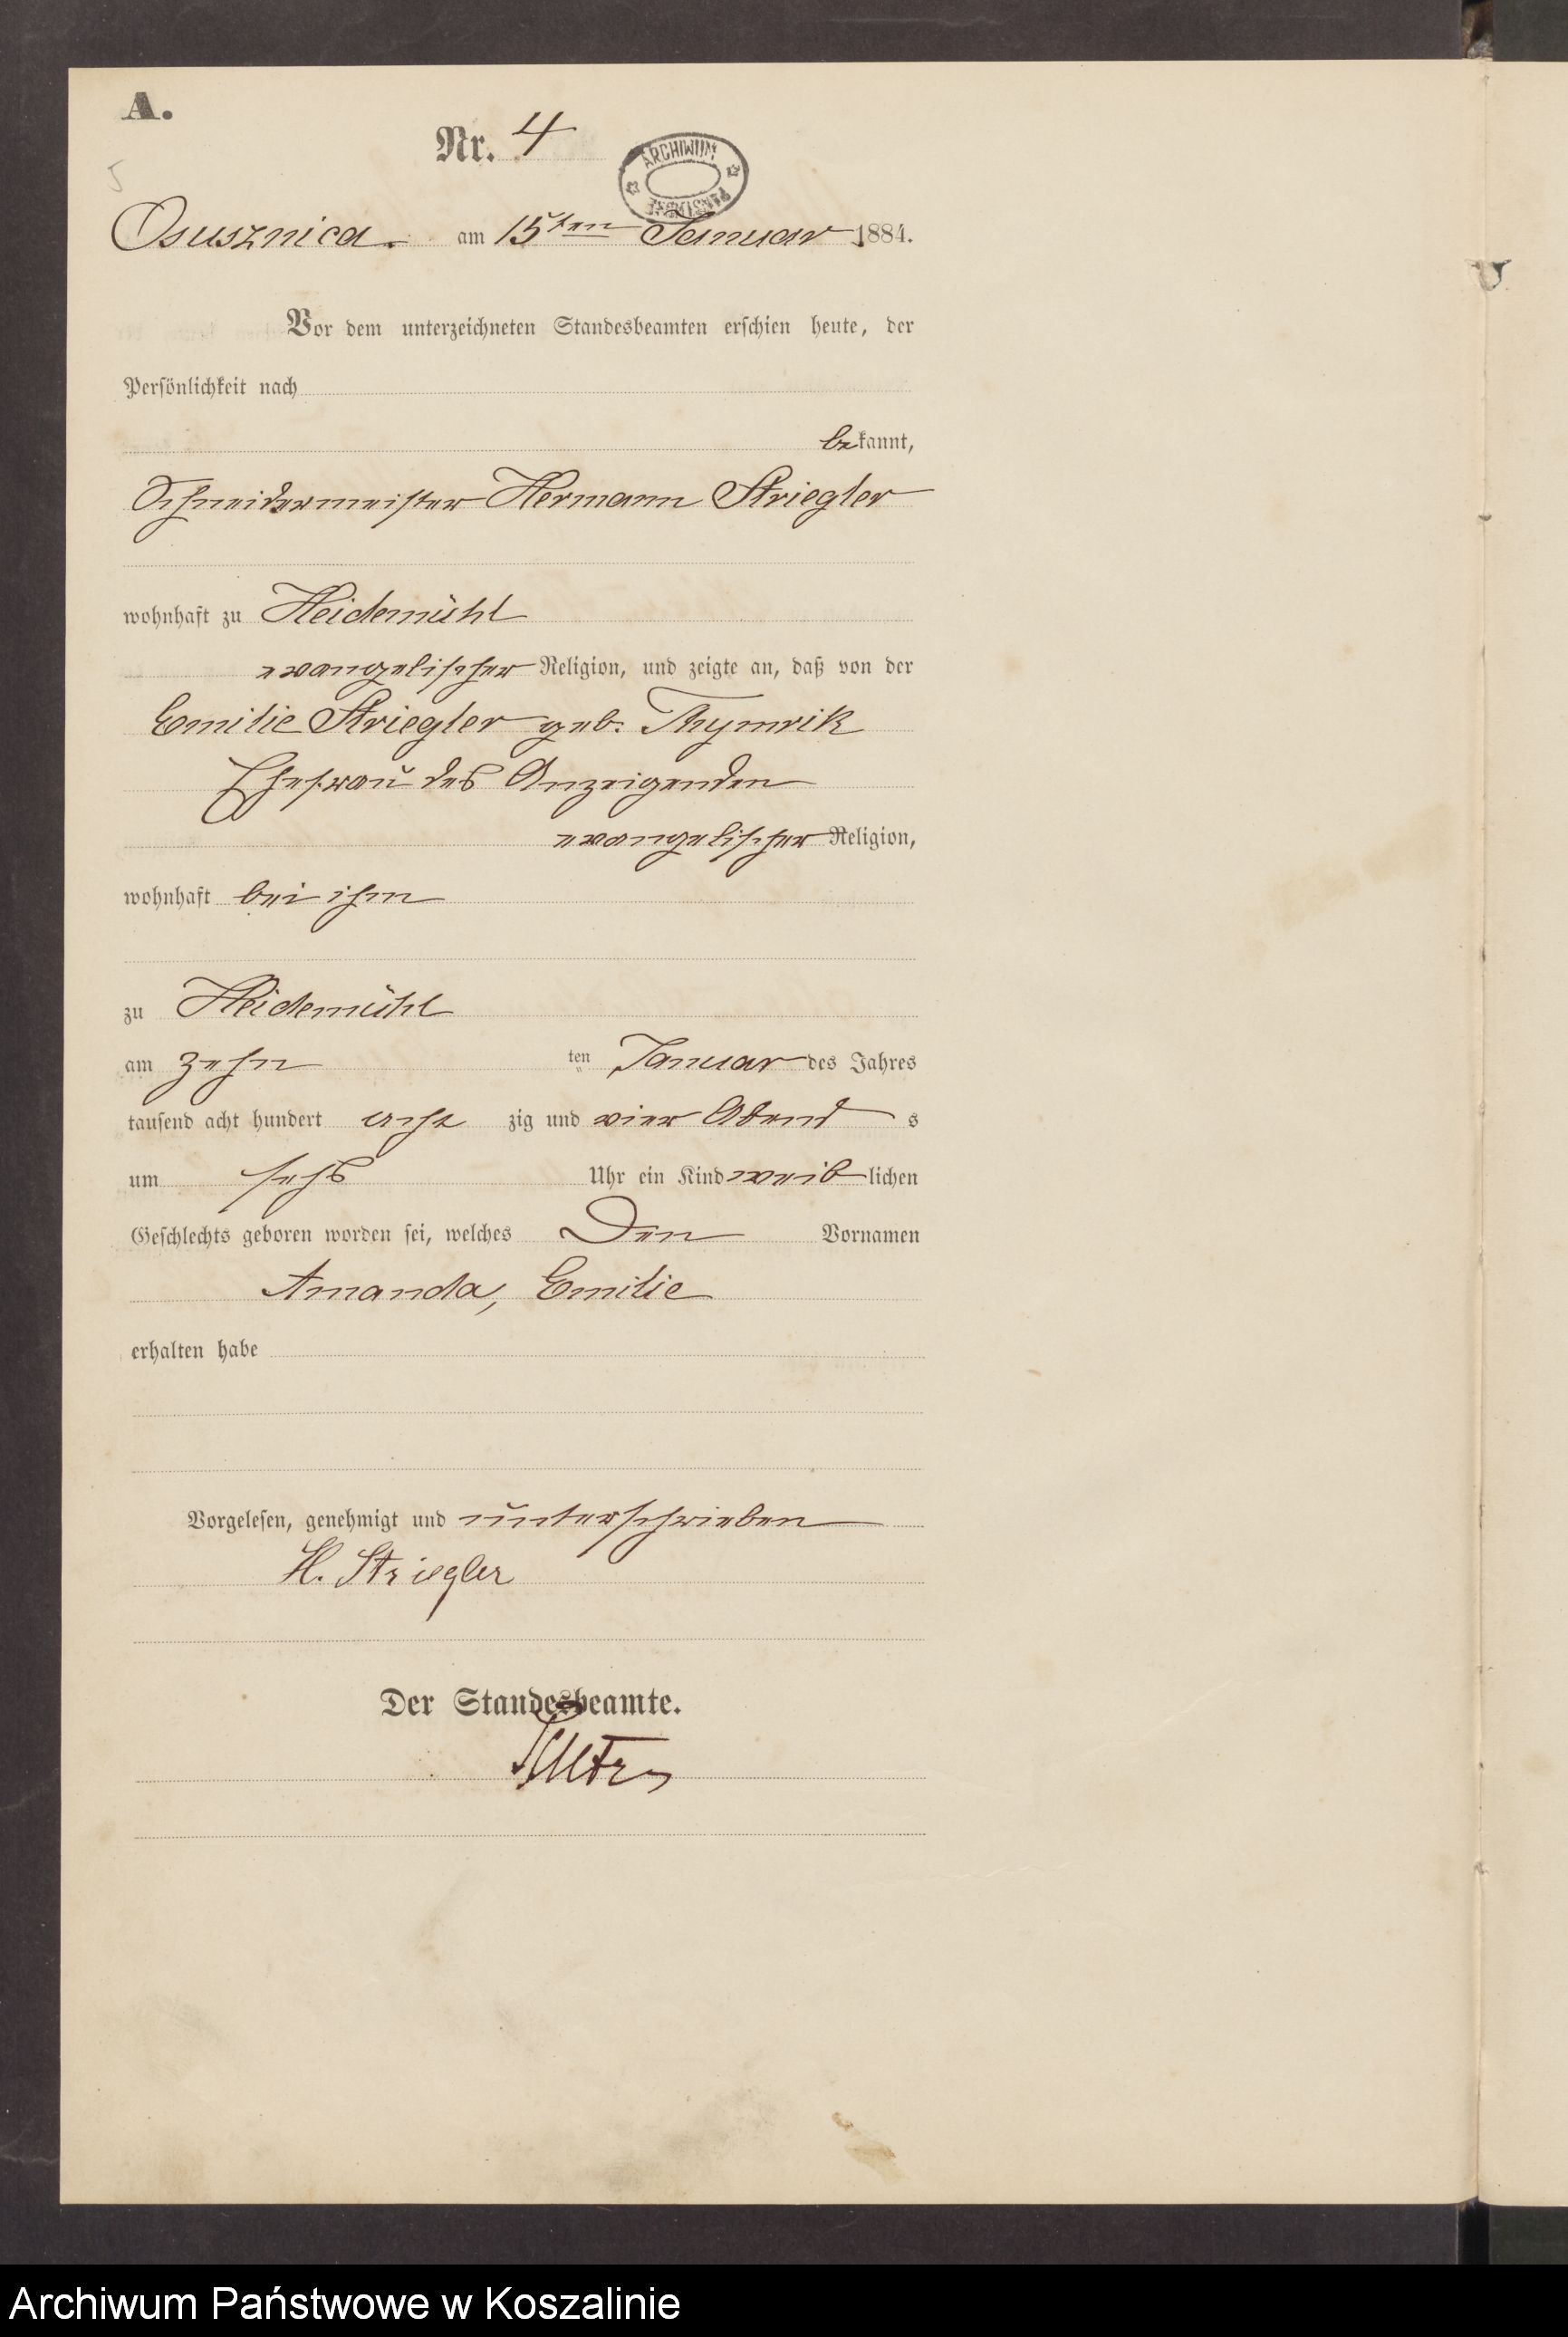 A.
Nr. 4
ARCHIWUM PAŃSTWOWE
5
Osusznica. am 15ten Januar 1884.
Vor dem unterzeichneten Standesbeamten erschien heute, der
Persönlichkeit nach
bekannt,
Schneidermeister Hermann Striegler
wohnhaft zu Heidemühl
evangelischer Religion, und zeigte an, daß von der
Emilie Striegler geb. Thymrik
Ehefrau des Anzeigenden
evangelischer Religion,
wohnhaft bei ihm
zu Heidemühl
am zehn ten Januar des Jahres
tausend acht hundert acht zig und vier Abend s
um sechs Uhr ein Kind weib lichen
Geschlechts geboren worden sei, welches Den Vornamen
Amanda, Emilie
erhalten habe
Vorgelesen, genehmigt und unterschrieben
H. Striegler
Der Standesbeamte.
Archiwum Państwowe w Koszalinie